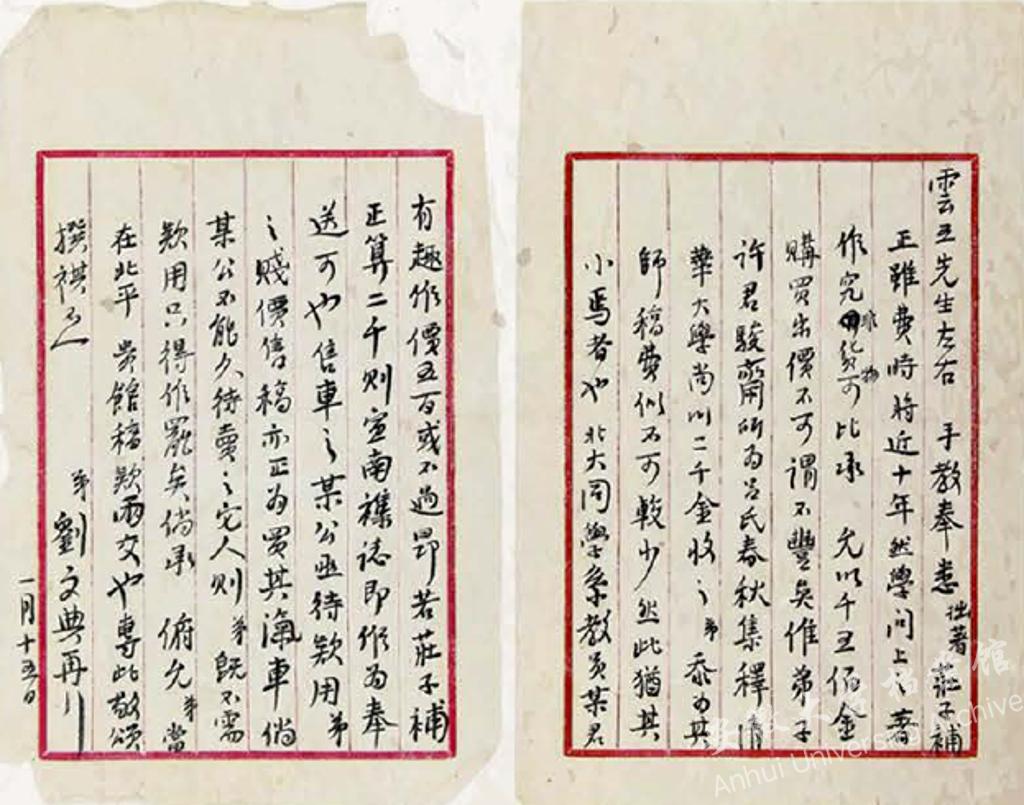 雲五先生左右 手教奉悉 拙著莊子補
正雖費時將近十年然學問上之著
作究非貨物可比承 允以千五佰金
購買出價不可謂不豐矣惟弟子
許君駿齋所為呂氏春秋集釋清
華大學尚以二千金收之弟忝為其
師稿費似不可較少然此猶其
小焉者也 北大同學系教員某君
有趣作價五百或不過昂若莊子補
正算二千則宣南襍誌即作為奉
送可也售車之某公亟待欵用弟
之賤價售稿亦正為買其汽車倘
某公不能久待賣之它人則弟既不需
欵用只得作罷矣倘承 俯允弟當
在北平 貴館稿欵兩交也專此敬頌
撰祺不一
弟劉文典再行
一月十五日
Anhui University Archive